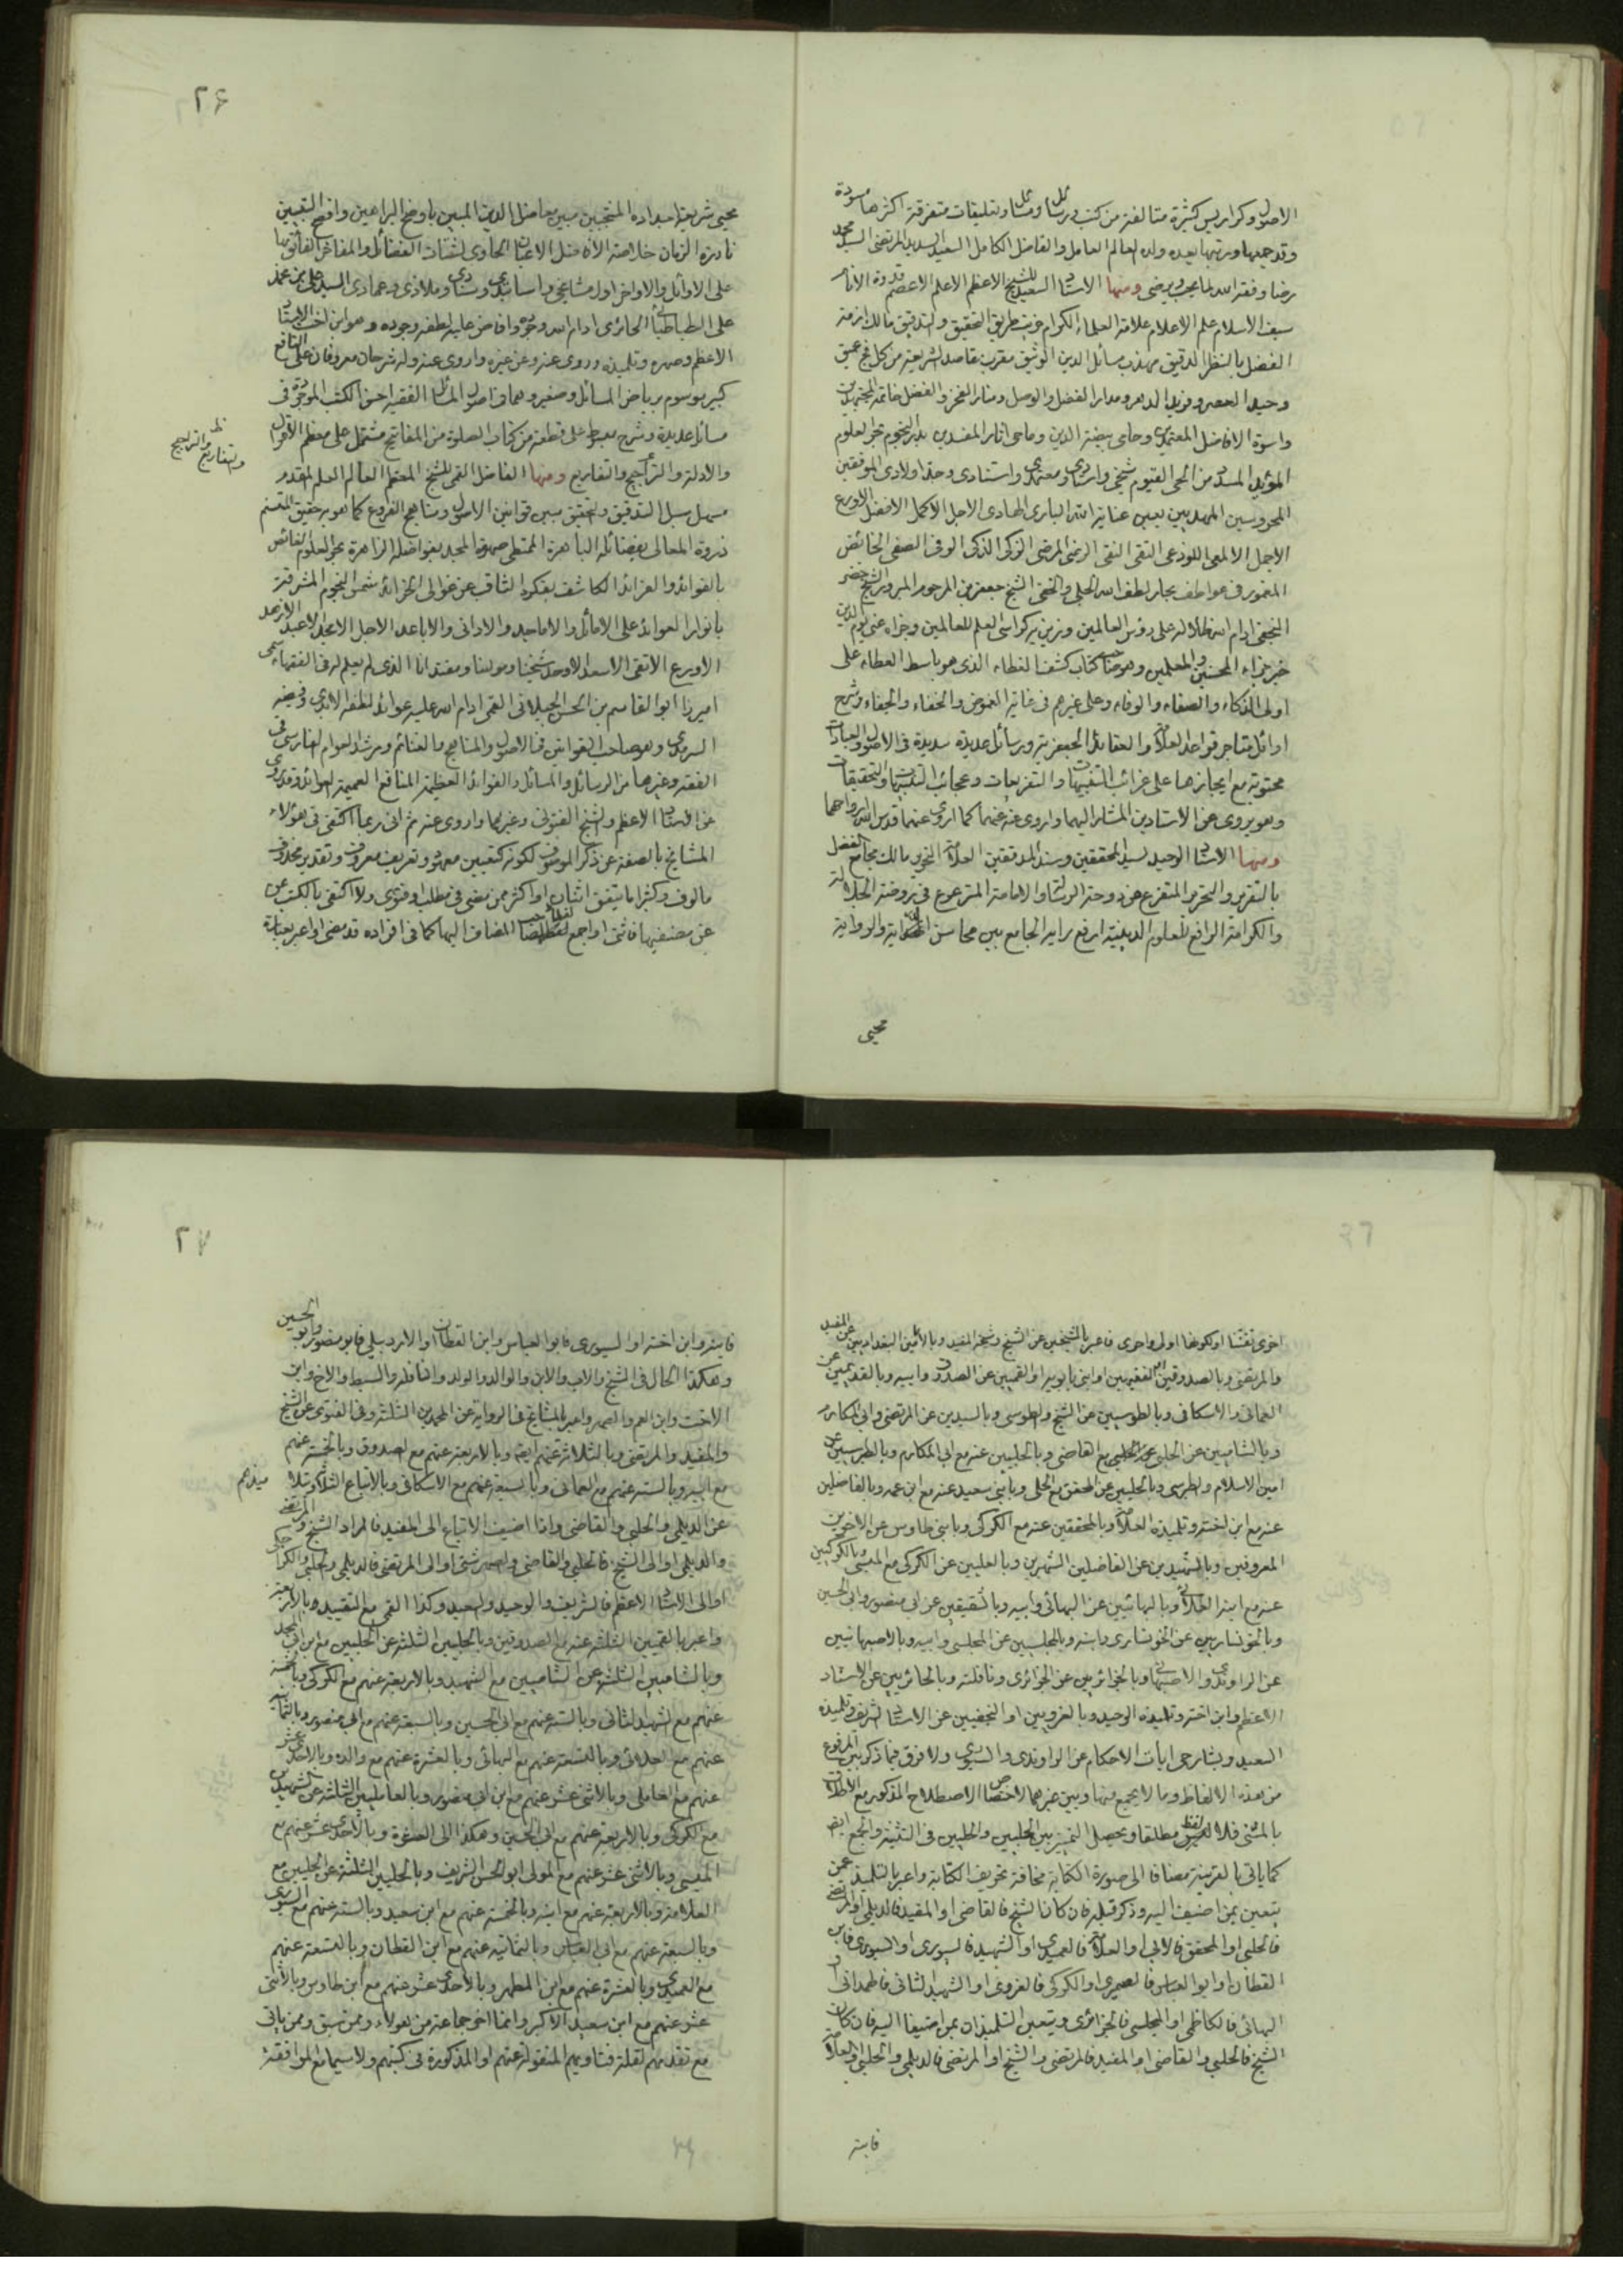 الاصول وكراريس كثيرة متالفة من كتب ورسائل ومسائل وتعليقات متفرقة اكثرها مسودة
وقد جمعها ورتبها بعده ولده العالم العامل والفاضل الكامل السعيد السديد المرتضى السيد محمد
رضا وفقه الله لما يحب ويرضى ومنها الاستاد السعيد للشيخ الاعظم الاعلم الاعصم قدوة الانام
سيف الاسلام علم الاعلام علامة العلماء الكرام خريت طريق التحقيق والتدقيق مالك ازمة
الفضل بالنظر الدقيق مهذب مسائل الدين الوثيق مقرب مقاصد الشريعة من كل فج عميق
وحيد العصر وفريد الدهر ومدار الفضل والوصل ومنار الفخر والفضل خاتمة المجتهدين
واسوة الافاضل المعتمدين وحامى بيضة الدين وماحى اثار المفسدين بدر النجوم بحر العلوم
المؤيد المسدد من الحى القيوم شيخى واستادى ومعتمدى واستنادى وجد اولادى الموفقين
المحروسين المهديين بعين عناية الله البارى الهادى الاجل الاكمل الافضل الاورع
الاجمل الالمعى اللوذعى التقى النقى الرضى المرضى الزكى الذكى الوفى الصفى الخائض
المغمور فى عواطف بحار لطف الله الجلى والخفى الشيخ جعفر بن المرحوم المبرور الشيخ خضر
النجفى ادام الله ظلاله على رؤس العالمين وزين به كراسى العلم للعالمين وجزاه عنى يوم الدين
خير جزاء المحسنين والمعلمين وهو صاحب كتاب كشف الغطاء الذى هو باسط العطاء على
اولى الذكاء والصفاء والوفاء وعلى غيرهم فى غاية الغموض والخفاء والجفاء وشرح
اوائل متاجر قواعد العلامة والعقائد الجعفرية ورسائل عديدة سديدة فى الاصول والعبادات
محتوية مع ايجازها على غرائب التنبيهات والتفريعات وعجائب التدقيقات والتحقيقات
وهو يروى عن الاستادين المشار اليهما واروى عنه عنهما كما اروى عنهما قدس الله ارواحهما
ومنها الاستاد الوحيد لسيد المحققين وسند المدققين العلامة النحرير مالك مجامع الفضل
بالتقرير والتحرير المتفرع من دوحة الرسالة والامامة المترعرع فى روضة الجلالة
والكرامة الرافع للعلوم الدينية ارفع راية الجامع بين محاسن الدراية والرواية
محيى
٢۶
محيى شريعة اجداده المنتجبين مبين معاضل الدين المبين باوضح البراهين وافصح التبيين
نادرة الزمان خلاصة الافاضل الاعيان الحاوى لشتات الفضائل والمفاخر الفائق بها
على الاوائل والاواخر اول مشايخى واساتيدى وسنادى وملاذى وعمادى السيد على بن محمد
على الطباطبائى الحائرى ادام الله وجوده وافاض عليه لطفه وجوده وهو ابن اخت الاستاد
الاعظم وصهره وتلميذه وروى عنه وعن غيره واروى عنه وله شرحان معروفان على النافع
كبير موسوم برياض المسائل وصغير وهما فى اصول المسائل الفقهية احسن الكتب الموجودة فى
مسائل عديدة وشرح مبسوط على قطعة من كتاب الصلوة من المفاتيح مشتمل على معظم الاقوال
والادلة والتراجيح والتفاريع ومنها الفاضل القمى للشيخ المعظم العالم العلم المقدم
مسهل سبل التدقيق والتحقيق مبين قوانين الاصول ومناهج الفروع كما هو به حقيق المتسنم
ذروة المعالى بفضائله الباهرة الممتطى صهوة المجد بفواضله الزاهرة بحر العلوم الفائض
بالفوائد والفرائد الكاشف بفكره الثاقب عن غوالى الخرائد شمس النجوم المشرقة
بانوار العوائد على الاماثل والاماجد والادانى والاباعد الاجل الامجد الاعبد الازهد
الاورع الاتقى الاسعد الاوحد شيخنا ومولينا ومقتدانا الذى لم يعلم له فى الفقهاء سمى
اميرزا ابوالقاسم بن الحسن الجيلانى القمى ادام الله عليه عوائد لطفه الابدى وفيضه
السرمدى وهو صاحب القوانين فى الاصول والمناهج والغنائم ومرشد العوام الفارسى فى
الفقه وغيرها من الرسائل والمسائل والفوائد العظيمة المنافع العميمة العوائد وقد روى
عن الاستاد الاعظم والشيخ الفتونى وغيرهما واروى عنه ثم انى ربما اكتفى فى هؤلاء
المشايخ بالصفة عن ذكر الموصوف لكونه كتعيين معهود وتعريف معروف وتقدير محذوف
مالوف وكثيرا ما يتفق اثنان او اكثر ممن مضى فى مطلب او فتوى ولا اكتفى بالكتب عن
عن مصنفيها فاثنى او اجمع لفظ صاحب المضاف اليها كما فى افراده قد مضى او اعبر بعبارة
ظ والتفاريع والتراجيح
اخرى تفننا او لكونها اولى واحرى فاعبر بالشيخين عن الشيخ وشيخه المفيد وبالاثنين البغداديين عن المفيد
والمرتضى وبالصدوقين او الفقيهين او ابنى بابويه او القميين عن الصدوق وابيه وبالقديمين عن
العمانى والاسكافى وبالطوسيين عن الشيخ والطوسى وبالسيدين عن المرتضى وابى المكارم
وبالشاميين عن الحلبى مع القاضى وبالحلبيين عنه مع ابى المكارم وبالطبرسيين عن
امين الاسلام والطبرسى وبالحليين عن المحقق مع الحلى وبابنى سعيد عنه مع ابن عمه وبالفاضلين
عنه مع ابن اخته وتلميذه العلامة وبالمحققين عنه مع الكركى وبابنى طاوس عن الاخوين
المعروفين وبالشهيدين عن الفاضلين الشهيرين وبالعليين عن الكركى مع الميسى وبالكركيين
عنه مع ابنه العلائى وبالبهائيين عن البهائى وابيه وبالشقيقين عن ابى منصور وابى الحسين
وبالخونساريين عن الخونسارى وابنه وبالمجلسيين عن المجلسى وابيه وبالاصبهانيين
عن الراوندى والاصبهانى وبالجزائريين عن الجزائرى ونافلته وبالحائريين عن الاستاد
الاعظم وابن اخته وتلميذه الوحيد وبالغرويين او النجفيين عن الاستاد الشريف وتلميذه
السعيد وبشارحى ايات الاحكام عن الراوندى والسيورى ولا فرق فيما ذكر بين المرفوع
من هذه الالفاظ وما لا يجمع منها وبين غيرهما لاختصاص الاصطلاح المذكور مع الاطلاق
بالمثنى فلا لفظ مطلقا ويحصل التمييز بين الحلبيين والحليين فى التثنية والجمع ايض
كما ياتى بالقرينة مضافا الى صورة الكتابة مخافة تحريف الكتابة واعبر بالتلميذ عمن
يتعين بمن اضيف اليه وذكر قبله فان كان الشيخ فالقاضى او المفيد فالديلمى او المرتضى
فالحلبى او المحقق فالابى او العلامة فالعميدى او الشهيد فالسيورى او السيورى فابن
القطان او ابو العباس فالصيمرى او الكركى فالغروى او الشهيد الثانى فالهمدانى او
البهائى فالكاظمى او المجلسى فالجزائرى ويتعين التلميذان بمن اضيفا اليه فان كان
الشيخ فالحلبى والقاضى او المفيد فالمرتضى والشيخ او المرتضى فالديلمى والحلبى او العلامة
فابنه
٢٧
فابنه وابن اخته او السيورى فابو العباس وابن القطان او الاردبيلى فابو منصور وابو الحسين
وهكذا الحال فى الشيخ والاب والابن والوالد والولد والنافلة والسبط والاخ وابن
الاخت وابن العم والصهر واعبر بالمشايخ فى الرواية عن المحمدين الثلثة وفى الفتوى عن الشيخ
والمفيد والمرتضى وبالثلاثة عنهم ايضا وبالاربعة عنهم مع الصدوق وبالخمسة عنهم
مع ابيه وبالستة عنهم مع العمانى وبالسبعة عنهم مع الاسكافى وبالاتباع الثلاثة
عن الديلمى والحلبى والقاضى واذا اضيف الاتباع الى المفيد فالمراد الشيخ والمرتضى
والديلمى او الى الشيخ فالحلبى والقاضى او الى المرتضى فالديلمى والحلبى والكراجكى
او الى الاستاد الاعظم فالشريف والوحيد والسعيد وكذا القمى مع التقييد وبالاربعة
واعبر بالقميين الثلثة عنه مع الصدوقين وبالحلبيين الثلثة عن الحلبيين مع ابن ابى المجد
وبالشاميين الثلثة عن الشاميين مع الشهيد وبالاربعة عنهم مع الكركى وبالخمسة
عنهم مع الشهيد الثانى وبالستة عنهم مع ابى الحسين وبالسبعة عنهم مع ابى منصور وبالثمانية
عنهم مع العلائى وبالتسعة عنهم مع البهائى وبالعشرة عنهم مع والده وبالاحد عشر
عنهم مع العاملى وبالاثنى عشر عنهم مع ابن ابى منصور وبالعامليين الثلثة عن الشهيدين
مع الكركى وبالاربعة عنهم مع ابى الحسين وهكذا الى العشرة وبالاحدى عشر عنهم مع
الميسى وبالاثنى عشر عنهم مع المولى ابو الحسن الشريف وبالحليين الثلثة عن الحليين مع
العلامة وبالاربعة عنهم مع ابنه وبالخمسة عنهم مع ابن سعيد وبالستة عنهم مع السيورى
وبالسبعة عنهم مع ابى العباس وبالثمانية عنهم مع ابن القطان وبالتسعة عنهم
مع العميدى وبالعشرة عنهم مع ابن المطهر وبالاحدى عشر عنهم مع ابن طاوس وبالاثنى
عشر عنهم مع ابن سعيد الاكبر وانما اخر جماعة من هؤلاء وممن سبق وممن ياتى
مع تقدمهم لقلة فتاويهم المنقولة عنهم او المذكورة فى كتبهم ولا سيما مع الموافقة